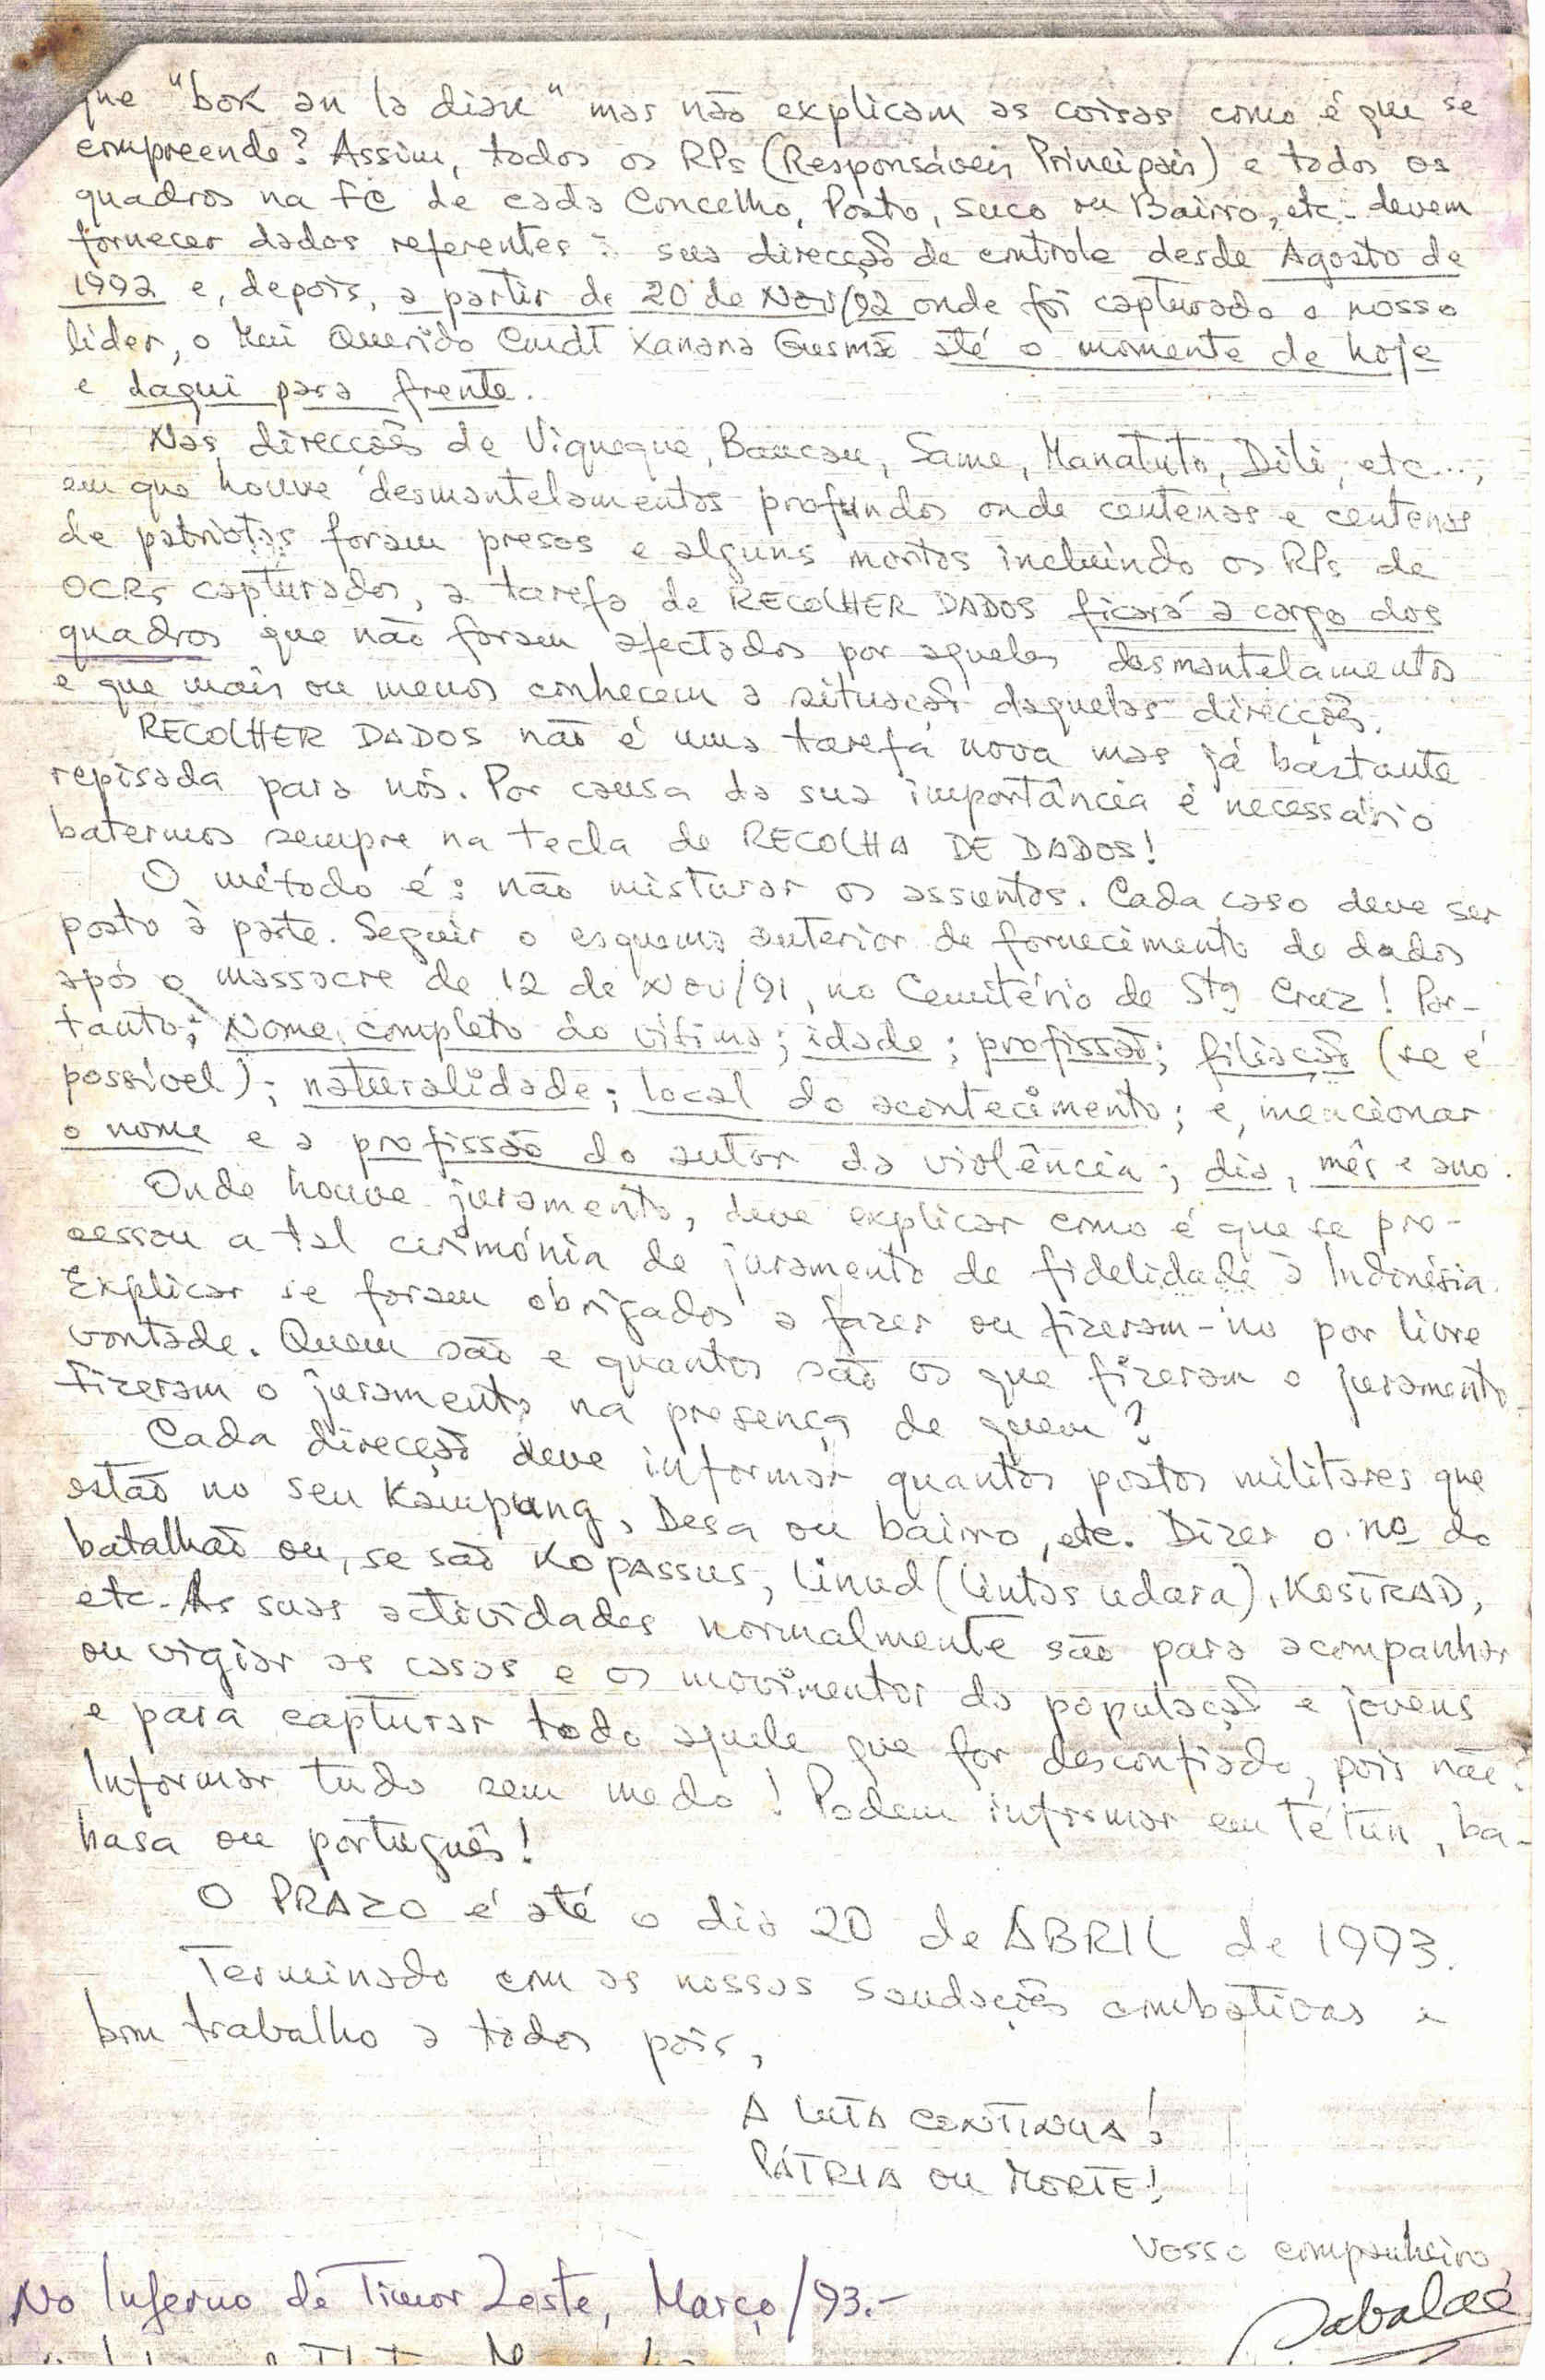 que "bok an la dian" mas não explicam as coisas como é que se
compreende? Assim, todos os RPs (Responsáveis Principais) e todos os
quadros na FC de cada Concelho, Posto, Suco ou Bairro, etc. devem
fornecer dados referentes à sua direcção de controle desde Agosto de
1992 e, depois, a partir de 20 de Nov/92 onde foi capturado o nosso
líder, o Mui Querido Cmdt Xanana Gusmão até o momento de hoje
e daqui para frente.
Nas direcções de Viqueque, Baucau, Same, Manatuto, Dili, etc...,
em que houve desmantelamentos profundos onde centenas e centenas
de patriotas foram presos e alguns mortos incluindo os RPs de
OCRs capturados, a tarefa de RECOLHER DADOS ficará a cargo dos
quadros que não foram afectados por aqueles desmantelamentos
e que mais ou menos conhecem a situação daquelas direcções.
RECOLHER DADOS não é uma tarefa nova mas já bastante
repisada para nós. Por causa da sua importância é necessário
batermos sempre na tecla de RECOLHA DE DADOS!
O método é: não misturar os assuntos. Cada caso deve ser
posto à parte. Seguir o esquema anterior de fornecimento de dados
após o massacre de 12 de Nov/91, no Cemitério de Stª Cruz! Por-
tanto; Nome completo da vítima; idade; profissão; filiação (se é
possível); naturalidade; local do acontecimento; e, mencionar
o nome e a profissão do autor da violência; dia, mês e ano.
Onde houve juramento, deve explicar como é que se pro-
cessou a tal cerimónia de juramento de fidelidade à Indonésia.
Explicar se foram obrigados a fazer ou fizeram-no por livre
vontade. Quem são e quantos são os que fizeram o juramento
fizeram o juramento na presença de quem?
Cada direcção deve informar quantos postos militares que
estão no seu Kampung, Desa ou bairro, etc. Dizer o nº do
batalhão ou, se são KOPASSUS, Linud (lintas udara), KOSTRAD,
etc. As suas actividades normalmente são para acompanhar
ou vigiar as casas e os movimentos da população e jovens
e para capturar todo aquele que for desconfiado, pois não?
Informar tudo sem medo! Podem informar em Tétun, ba-
hasa ou português!
O PRAZO é até o dia 20 de ABRIL de 1993.
Terminado com as nossas saudações combativas e
bom trabalho a todos pois,
A LUTA CONTINUA!
PÁTRIA OU MORTE!
Vosso companheiro,
Sabalae
No Inferno de Timor Leste, Março/93.-